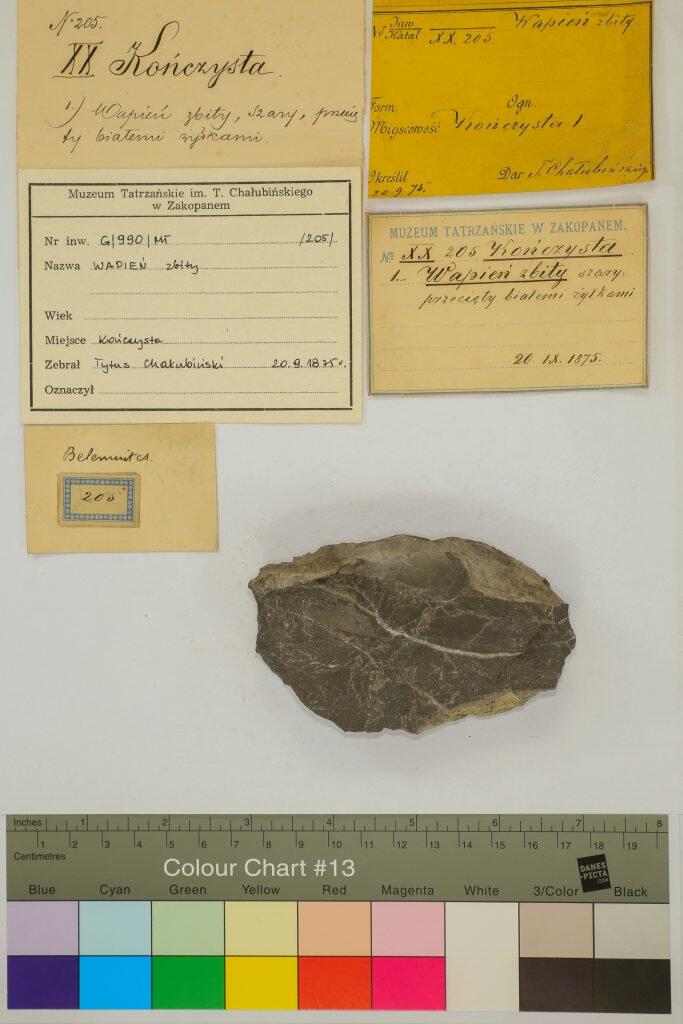 N° 205.
XX Kończysta.
1.) Wapień zbity, szary, przecię
ty białemi żyłkami.
N° Inw. Katal XX. 205 Wapień zbity
Form. Ogn.
Miejscowość Kończysta 1
Określił Dar T. Chałubińskiego
20.9.75.
Muzeum Tatrzańskie im. T. Chałubińskiego
w Zakopanem
Nr inw. G/990/MT /205/
Nazwa WAPIEŃ zbity
Wiek
Miejsce Kończysta
Zebrał Tytus Chałubiński 20.9.1875r.
Oznaczył
MUZEUM TATRZAŃSKIE W ZAKOPANEM.
№ XX 205 Kończysta
1. Wapień zbity szary.
przecięty białemi żyłkami
20. IX. 1875.
Belemnites.
205
Inches 1 2 3 4 5 6 7 8
1 2 3 4 5 6 7 8 9 10 11 12 13 14 15 16 17 18 19
Centimetres
Colour Chart #13
DANES
-PICTA
.COM
Blue Cyan Green Yellow Red Magenta White 3/Color Black